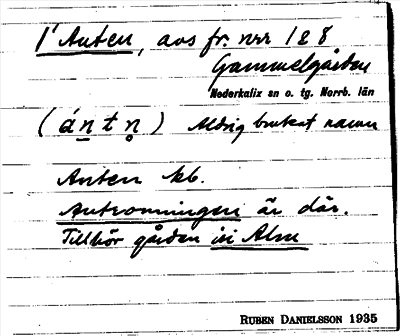 1' Anten, avs fr. nrr 188
Gammelgården
Nederkalix sn o. tg. Norrb. län
(ántn̥) Aldrig brukat namn
Anten kb.
Antromningen är där.
Tillhör gården isi Alm
RUBEN DANIELSSON 1935